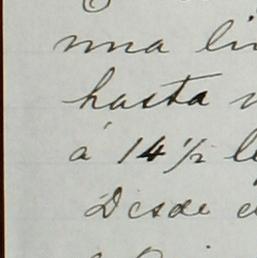 una li
hasta
á 14 1/2 le
Desde e